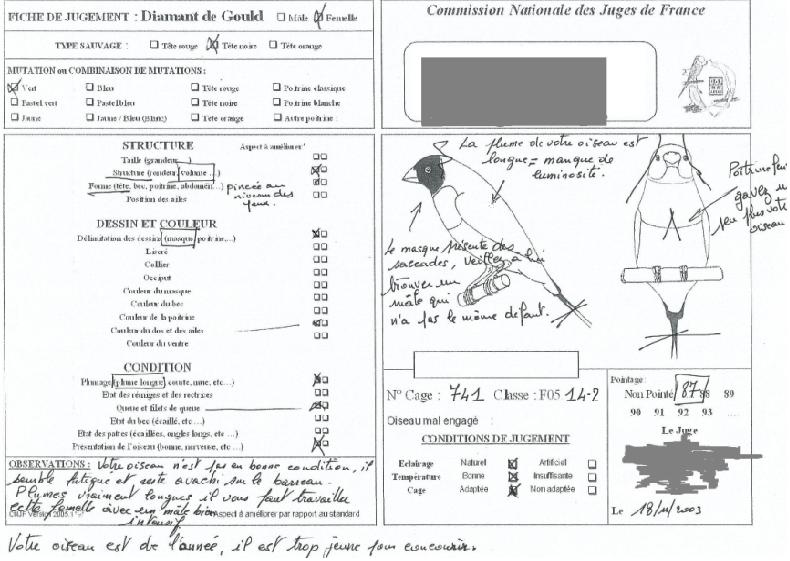 FICHE DE JUGEMENT : Diamant de Gould ☐ Mâle ☒ Femelle
TYPE SAUVAGE : ☐ Tête rouge ☒ Tête noire ☐ Tête orange
MUTATION ou COMBINAISON DE MUTATIONS :
☒ Vert ☐ Bleu ☐ Tête rouge ☐ Poitrine classique
☐ Pastel vert ☐ Pastel bleu ☐ Tête noire ☐ Poitrine blanche
☐ Jaune ☐ Jaune / Bleu (Blanc) ☐ Tête orange ☐ Autre poitrine :
Commission Nationale des Juges de France
STRUCTURE Aspect à améliorer
Taille (grandeur, ...)
Structure (rondeur, volume ...)
Forme (tête, bec, poitrine, abdomen...) pincée au
niveau des
yeux.
Position des ailes
DESSIN ET COULEUR
Délimitation des dessins (masque, poitrine,...)
Liseré
Collier
Occiput
Couleur du masque
Couleur du bec
Couleur de la poitrine
Couleur du dos et des ailes
Couleur du ventre
CONDITION
Plumage (plume longue, courte, mue, etc...)
Etat des rémiges et des rectrices
Queue et filets de queue
Etat du bec (écaillé, etc...)
Etat des pattes (écaillées, ongles longs, etc...)
Présentation de l'oiseau (bonne, nerveuse, etc...)
OBSERVATIONS : Votre oiseau n'est pas en bonne condition, il
semble fatigué et reste avachi sur le barreau.
Plumes vraiment longues il vous faut travailler
cette femelle avec un mâle bien
intensif.
Version 2003.1 Aspect à améliorer par rapport au standard
La plume de votre oiseau est
longue = manque de
luminosité.
Le masque présente des
saccades, veillez à lui
trouver un
mâle qui
n'a pas le même défaut.
gavez un
peu plus votre
oiseau
N° Cage : 741 Classe : F05 14-2
Oiseau mal engagé :
CONDITIONS DE JUGEMENT
Eclairage Naturel ☒ Artificiel ☐
Température Bonne ☒ Insuffisante ☐
Cage Adaptée ☒ Non adaptée ☐
Pointage :
Non Pointé 87 88 89
90 91 92 93 ....
Le Juge
Le 18/11/2003
Votre oiseau est de l'année, il est trop jeune pour concourir.